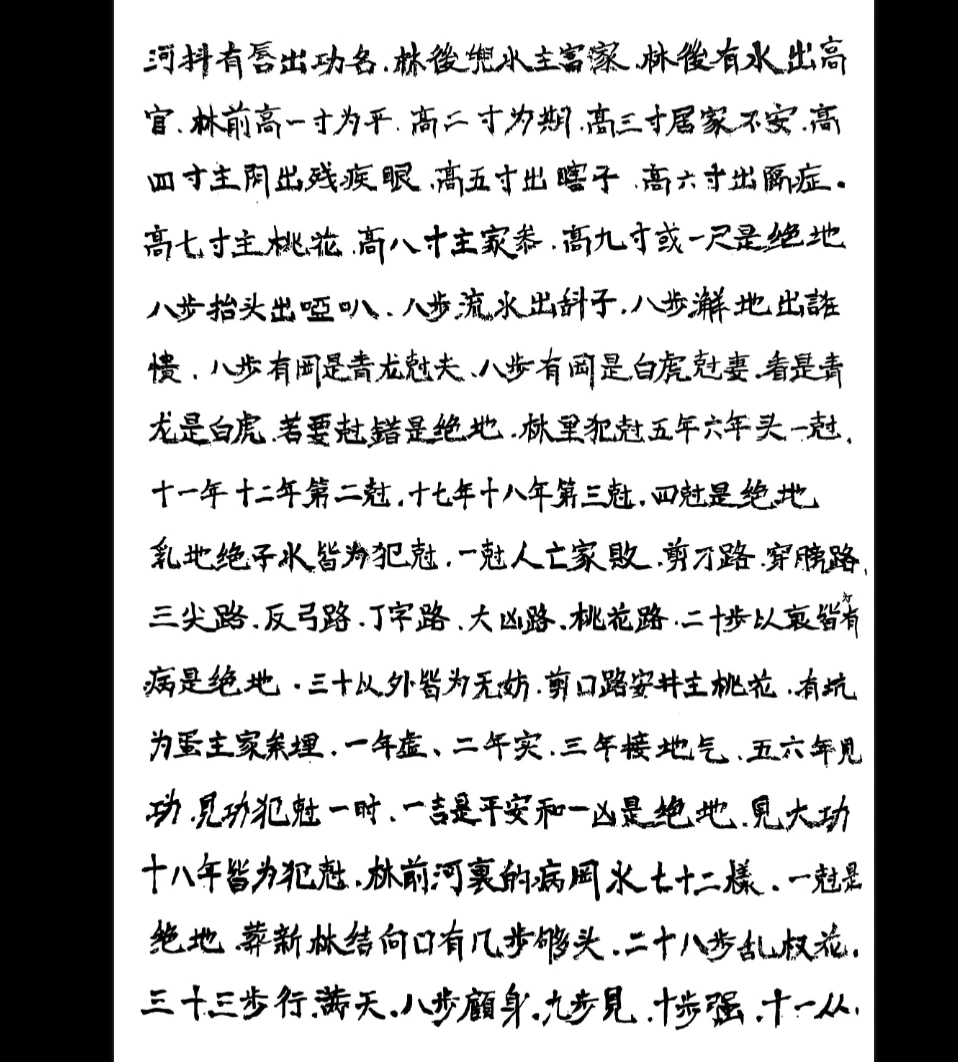 河抖有唇出功名.林後兜水主富家.林後有水出高
官.林前高一寸为平.高二寸为期.高三寸居家不安.高
四寸主阴出残疾眼.高五寸出瞎子.高六寸出膈症.
高七寸主桃花.高八寸主家叅.高九寸或一尺是绝地
八步抬头出哑叭.八步流水出斜子.八步澥地出
愦.八步有岡是青龙尅夫.八步有岡是白虎尅妻.看是青
龙是白虎.若要尅錯是绝地.林里犯尅五年六年头一尅.
十一年十二年第二尅.十七年十八年第三尅.四尅是绝地
乳地绝子水皆为犯尅.一尅人亡家敗.剪刀路.穿膀路.
三尖路.反弓路.丁字路.大凶路.桃花路.二十步以裏皆为有
病是绝地.三十以外皆为无妨.剪口路安井主桃花.有坑
为蛋主家系埋.一年虚、二年实.三年接地气.五六年見
功.見功犯尅一时.一吉是平安和一凶是绝地.見大功
十八年皆为犯尅.林前河裏的病岡水七十二樣.一尅是
绝地.葬新林结向口有几步够头.二十八步乱杈花.
三十三步行满天.八步顧身.九步見.十步强.十一从.